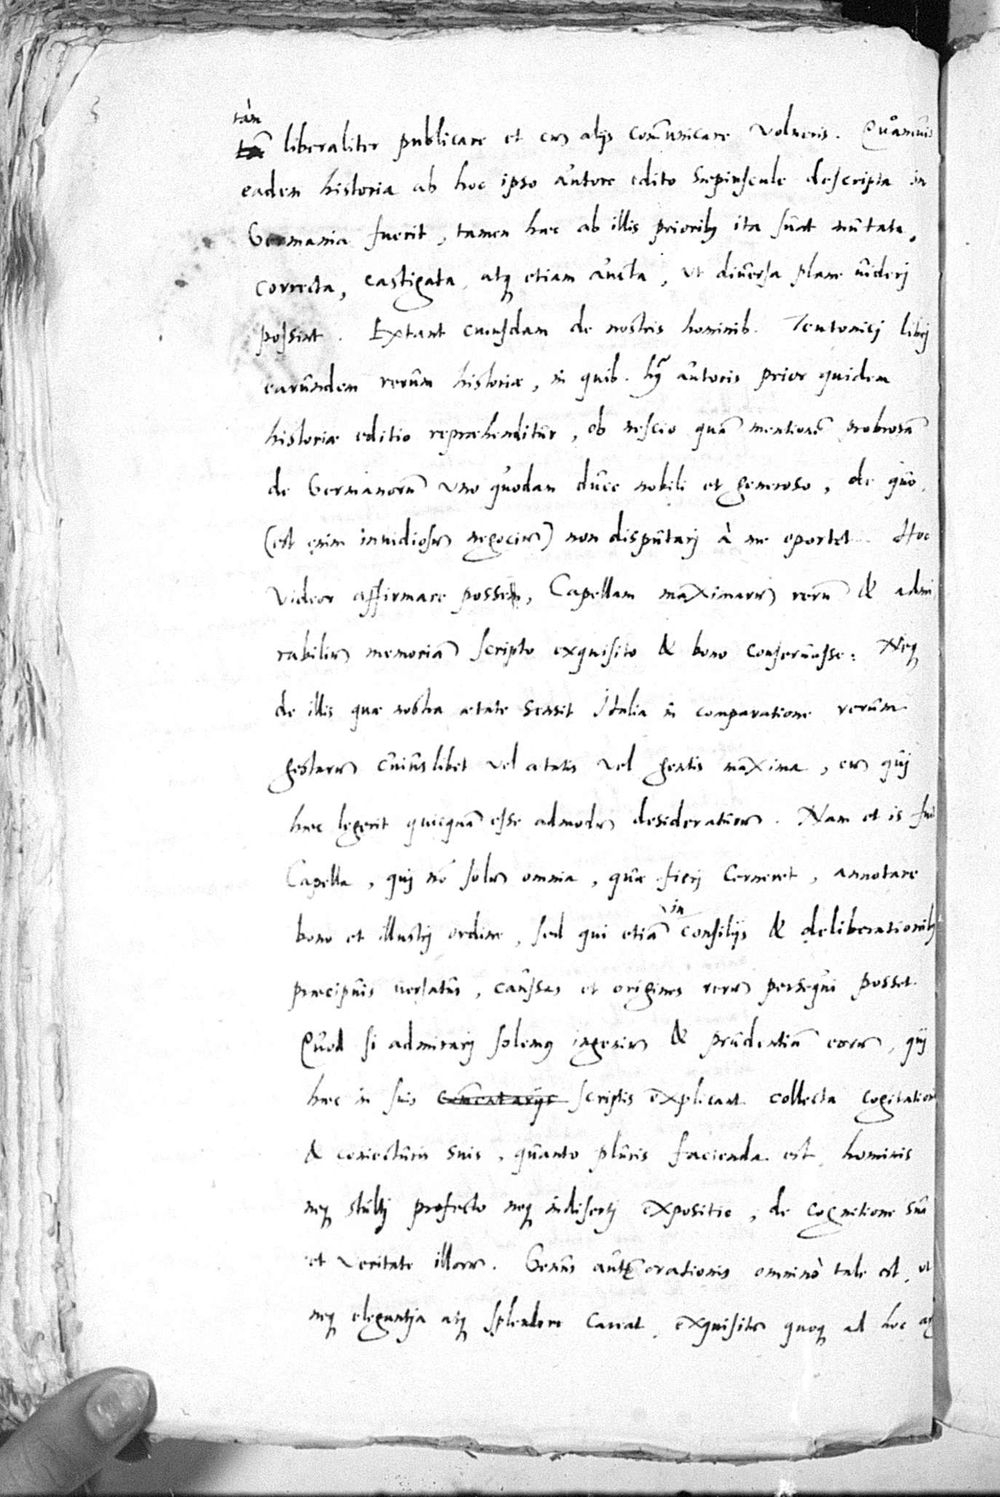 tàn
liberaliter publicare et cũ alijs comũnicare volueris. Quamuis
eadem historia ab hoc ipso autore edito sæpiuscule descripta in
Germania fuerit, tamen hæc ab illis priorib; ita sunt mutata,
correcta, castigata, atq; etiam aucta, ut diuersa plane uiderj
possint. Extant cuiusdam de nostris hominib. Teutonicj librj
earundem rerum historiæ, in quib. huj autoris prior quidem
historiæ editio repræhenditur, ob nescio quã mentionẽ probrosã
de Germanorũ uno quodam duce nobili et generoso, de quo,
(est enim inuidiosũ negociũ) non disputarj à me oportet. Hoc
videor affirmare posse, Capellam maximarũ rerũ & admi
rabiliũ memoriã scripto exquisito & bono conseruasse: Neq;
de illis quæ nostra ætate sensit Italia in comparatione rerum
gestarũ cuiuslibet vel ætatis vel gentis maxima, eũ quj
hæc legerit quicquã esse admodũ desideraturũ. Nam et is fuit
Capella, quj nõ solũ omnia, quæ fierj cerneret, annotare
in
bono et illustrj ordine, sed qui etiã consilijs & deliberationib;
præcipuis uersatus, caussas et origines rerũ persequi posset.
Quod si admirarj solemus ingeniũ & prudentiã eorũ, quj
hæc in suis comẽtarijs scriptis explicant collecta cogitation
& coniecturis suis, quanto pluris facienda est, hominis
neq; stultj profecto neq; indisertj expositio, de cognitione sua
et veritate illarũ. Genus autẽ orationis omninò tale est, ut
neq; elegantja atq; splendore careat, exquisitũ quoq; ad hoc